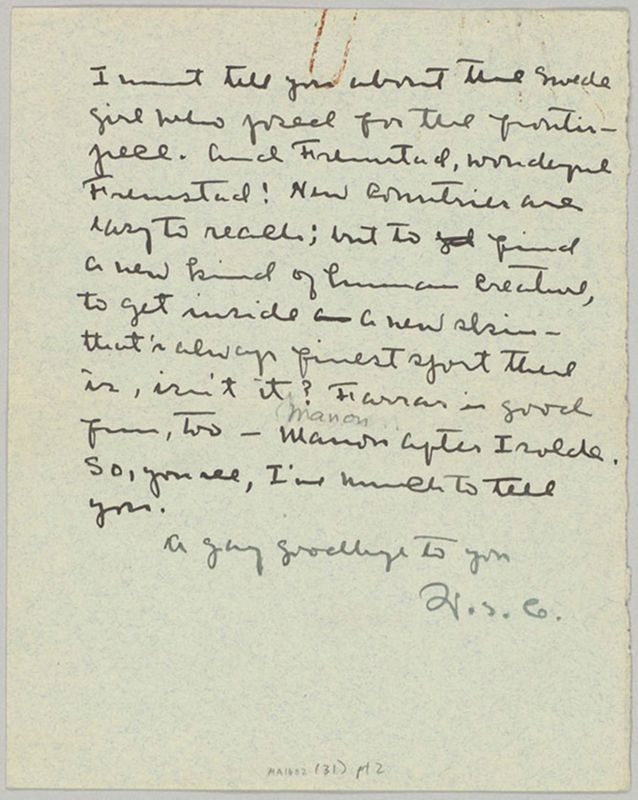 I must tell you about the Swede
girl who posed for the frontis-
piece. And Fremstad, wonderful
Fremstad! New Countries are
easy to reach; but to find
a new kind of human creature,
to get inside a new skin—
that's always finest sport there
is, isn't it? Farrar is good
(Manon
fun, too — Manon after Isolde.
So, you see, I've much to tell
you.
A gay goodbye to you
W. S. C.
MA1602 (31) pt 2